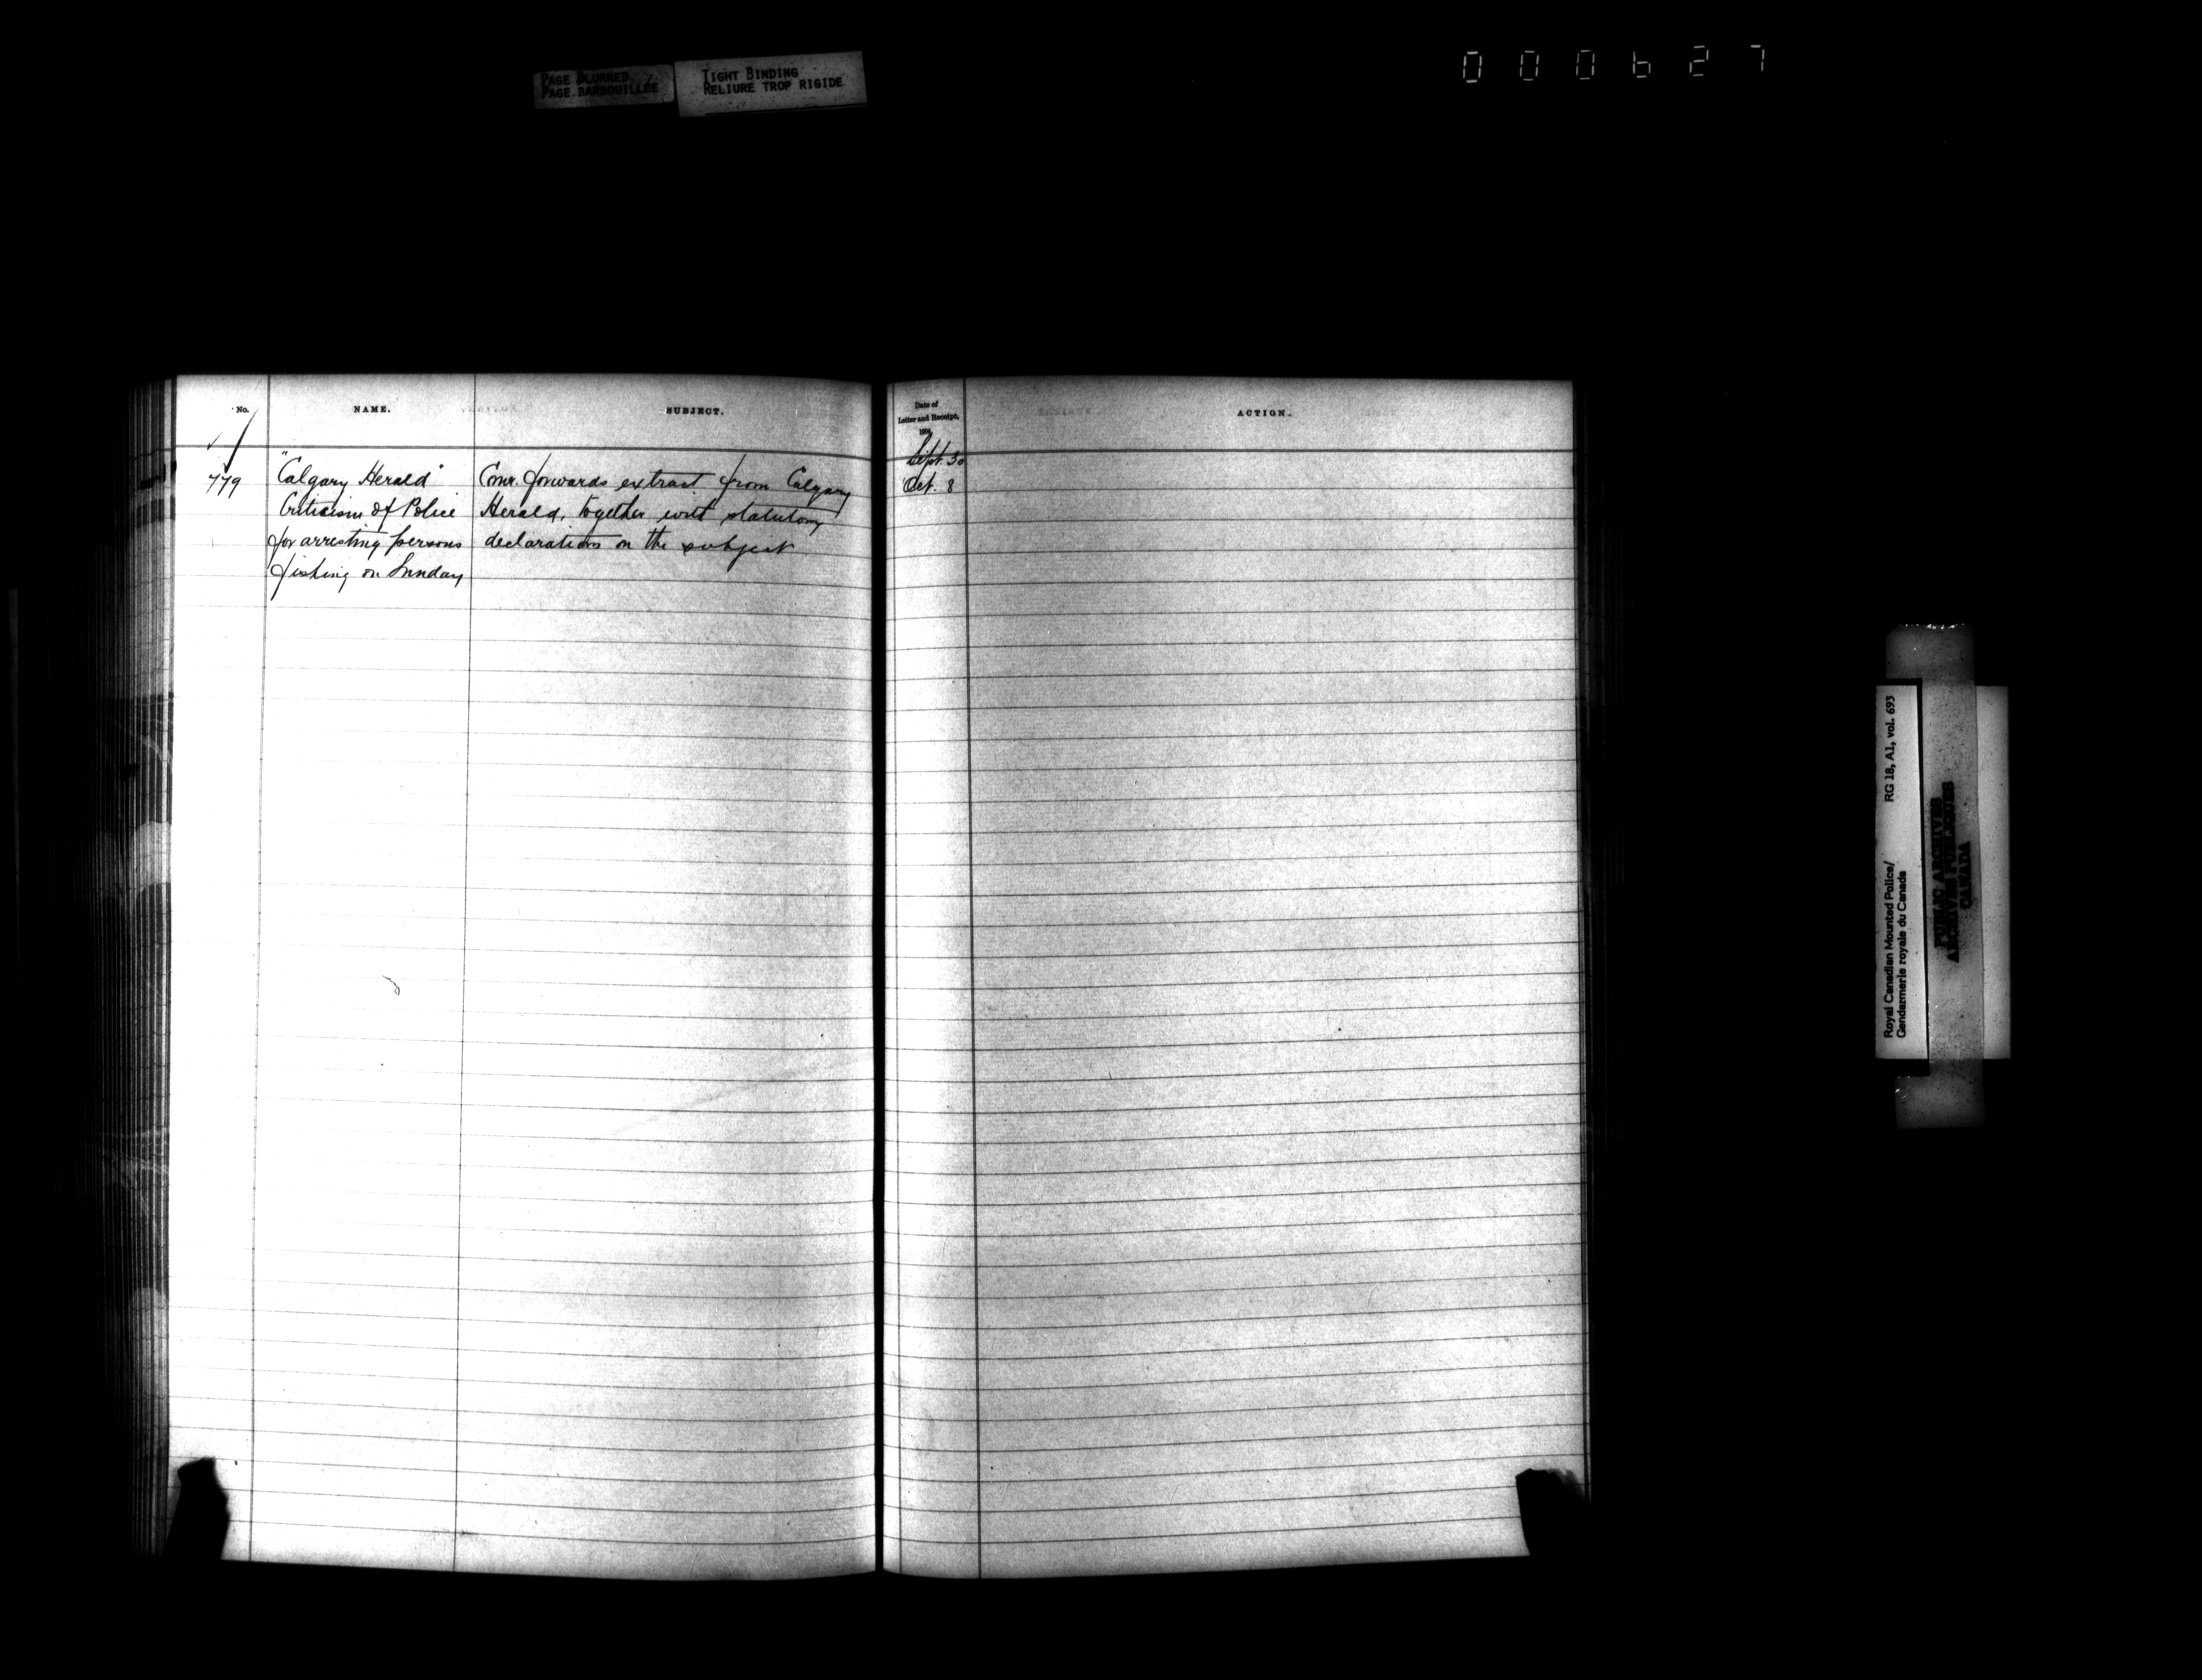 PAGE BLURRED
PAGE BARBOUILLÉE
TIGHT BINDING
RELIURE TROP RIGIDE
000627
No.
NAME.
SUBJECT.
Date of
Letter and Receipt,
1904
ACTION.
Sept. 30
779 "Calgary Herald" Comr. forwards extract from Calgary Oct. 8
Criticism of Police Herald, together with statutory
for arresting persons declarations on the subject
fishing on Sunday
Royal Canadian Mounted Police/ RG 18, A1, vol. 693
Gendarmerie royale du Canada
PUBLIC ARCHIVES
ARCHIVES PUBLIQUES
CANADA